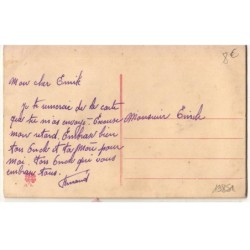 8€
Mon cher Emile
je te remercie de la carte
que tu m'as envoyé. Excuse
mon retard. Embrasse bien
ton Oncle et ta Mère pour
moi. Ton Oncle qui vous
embrasse tous.
Monsieur Emile